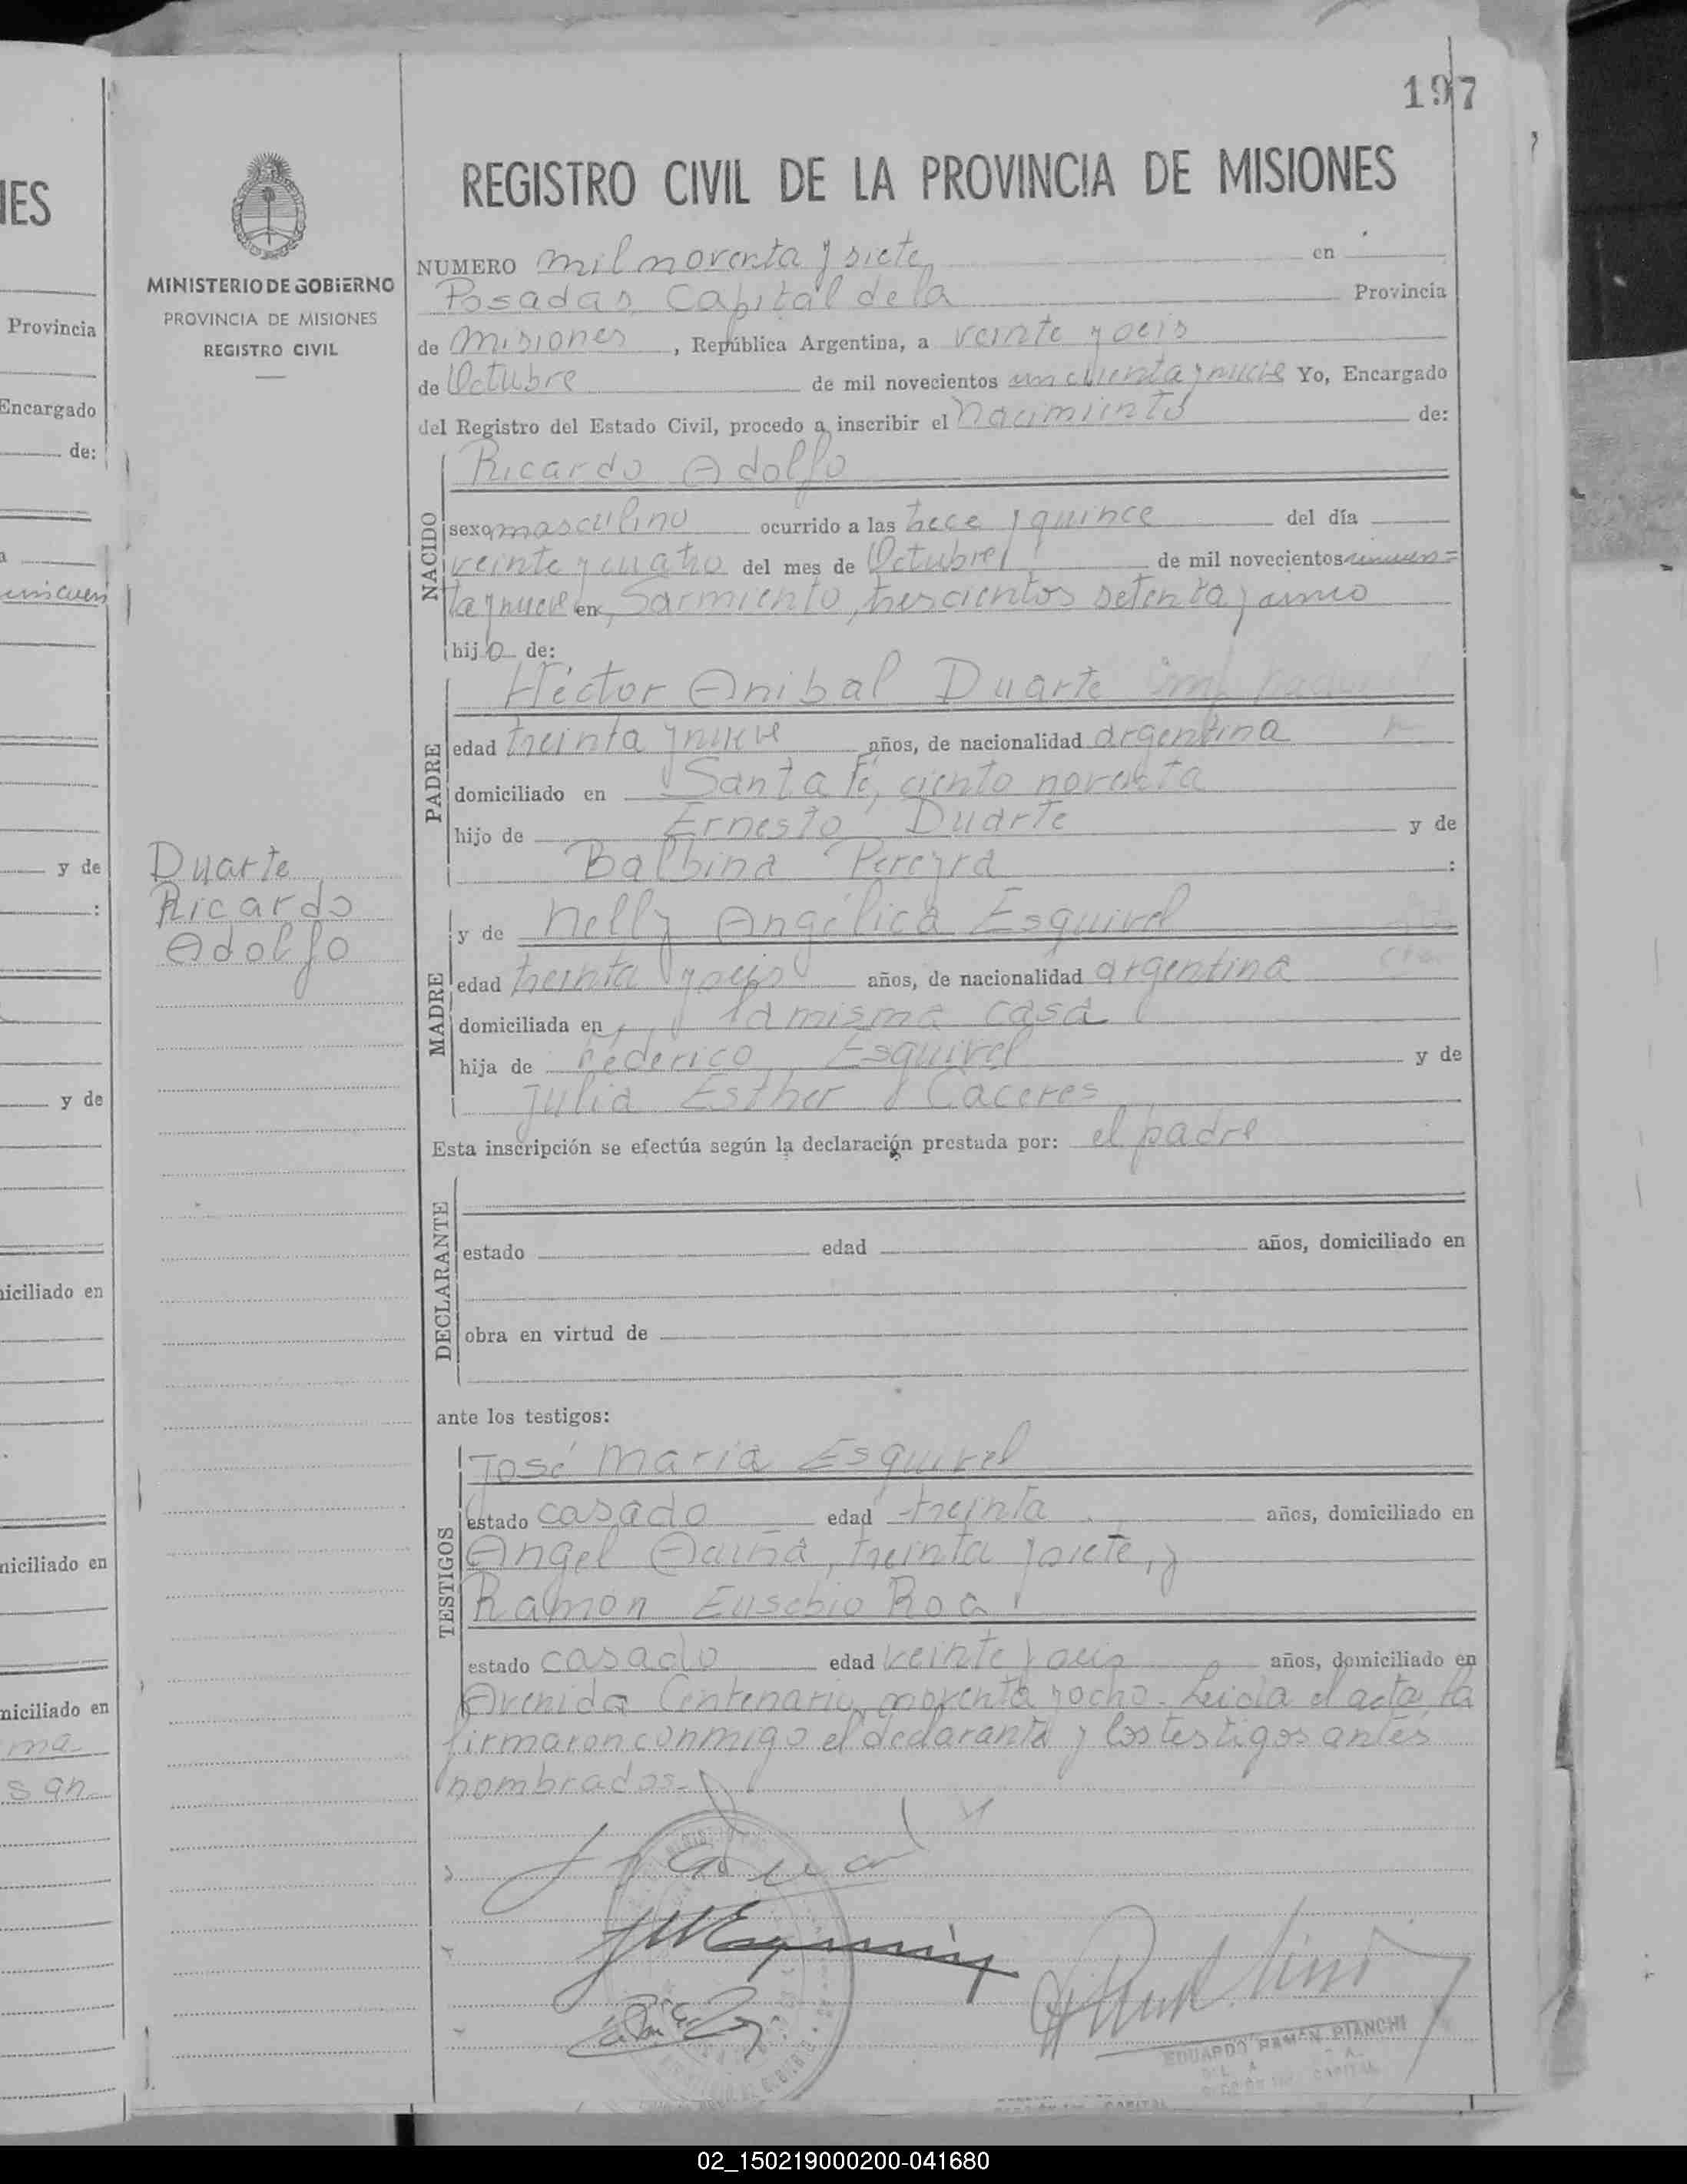 197
REGISTRO CIVIL DE LA PROVINCIA DE MISIONES
MINISTERIO DE GOBIERNO
PROVINCIA DE MISIONES
REGISTRO CIVIL
NUMERO mil noventa y siete en
Posadas, Capital de la Provincia
de Misiones, República Argentina, a veinte y seis
de Octubre de mil novecientos cincuenta y nueve Yo, Encargado
del Registro del Estado Civil, procedo a inscribir el nacimiento de:
NACIDO
Ricardo Adolfo
sexo masculino ocurrido a las trece y quince del día
veinte y cuatro del mes de Octubre de mil novecientos cincuen=
ta y nueve en Sarmiento, trescientos setenta y cinco
hijo de:
PADRE
Héctor Anibal Duarte
edad treinta y nueve años, de nacionalidad argentina
domiciliado en Santa Fé, ciento noventa
hijo de Ernesto Duarte y de
Balbina Pereyra :
Duarte
Ricardo
Adolfo
MADRE
y de Nelly Angélica Esquivel
edad treinta y seis años, de nacionalidad argentina
domiciliada en la misma casa
hija de Federico Esquivel y de
Julia Esther Caceres
Esta inscripción se efectúa según la declaración prestada por: el padre
DECLARANTE
estado edad años, domiciliado en
obra en virtud de
ante los testigos:
TESTIGOS
José Maria Esquivel
estado casado edad treinta años, domiciliado en
Angel Acuña, treinta y siete, y
Ramon Eusebio Roa
estado casado edad veinte y seis años, domiciliado en
Avenida Centenario, noventa y ocho. Leida el acta, la
firmaron conmigo el declarante y los testigos antes
nombrados.-
EDUARDO RAMON BIANCHI
CAPITAL
IES
Provincia
Encargado
de:
cincuen
y de
:
y de
niciliado en
niciliado en
niciliado en
ma
san
02_150219000200-041680